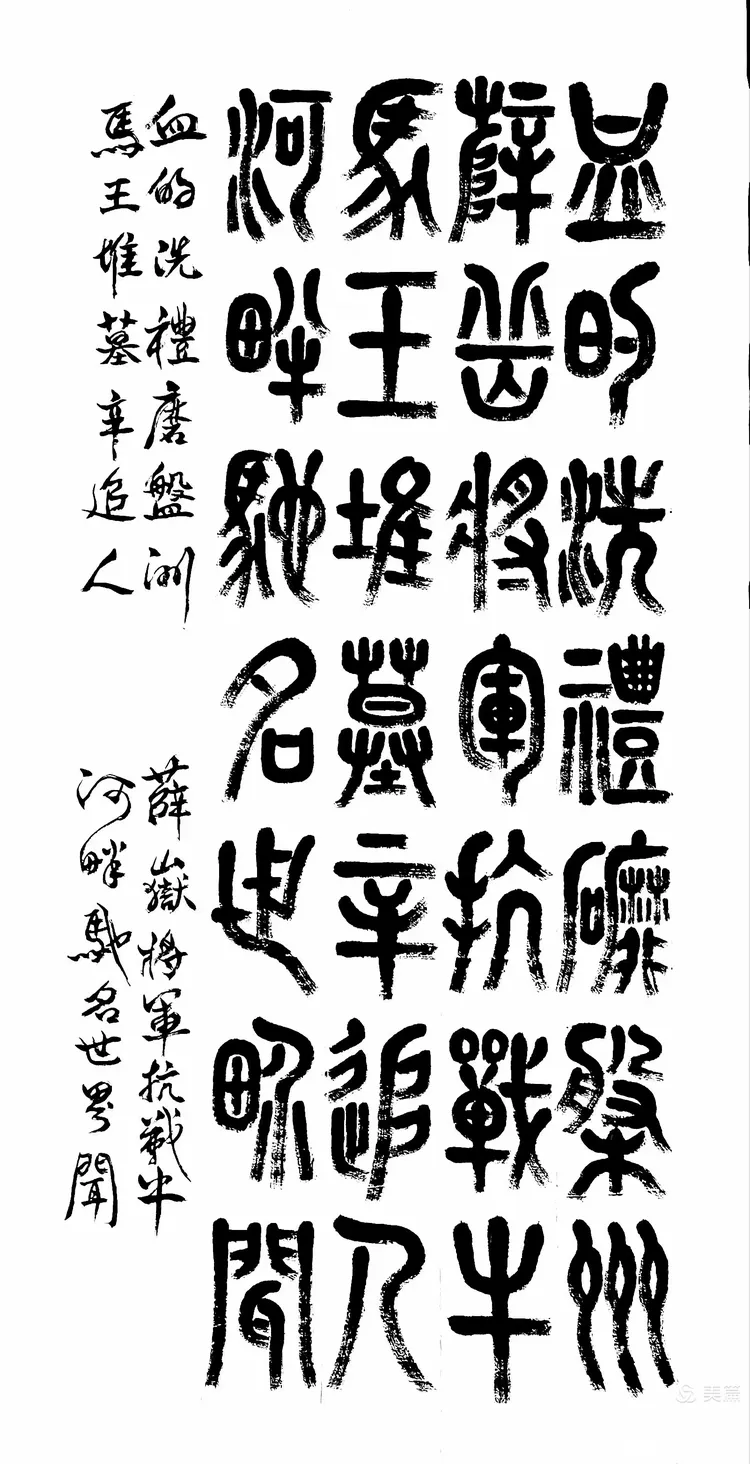 血的洗禮䃺槃州
薛岳將軍抗戰牛
馬王堆墓辛追人
河畔馳名世畍聞
血的洗禮磨盤洲
薛嶽將軍抗戰牛
馬王堆墓辛追人
河畔馳名世界聞
美篇